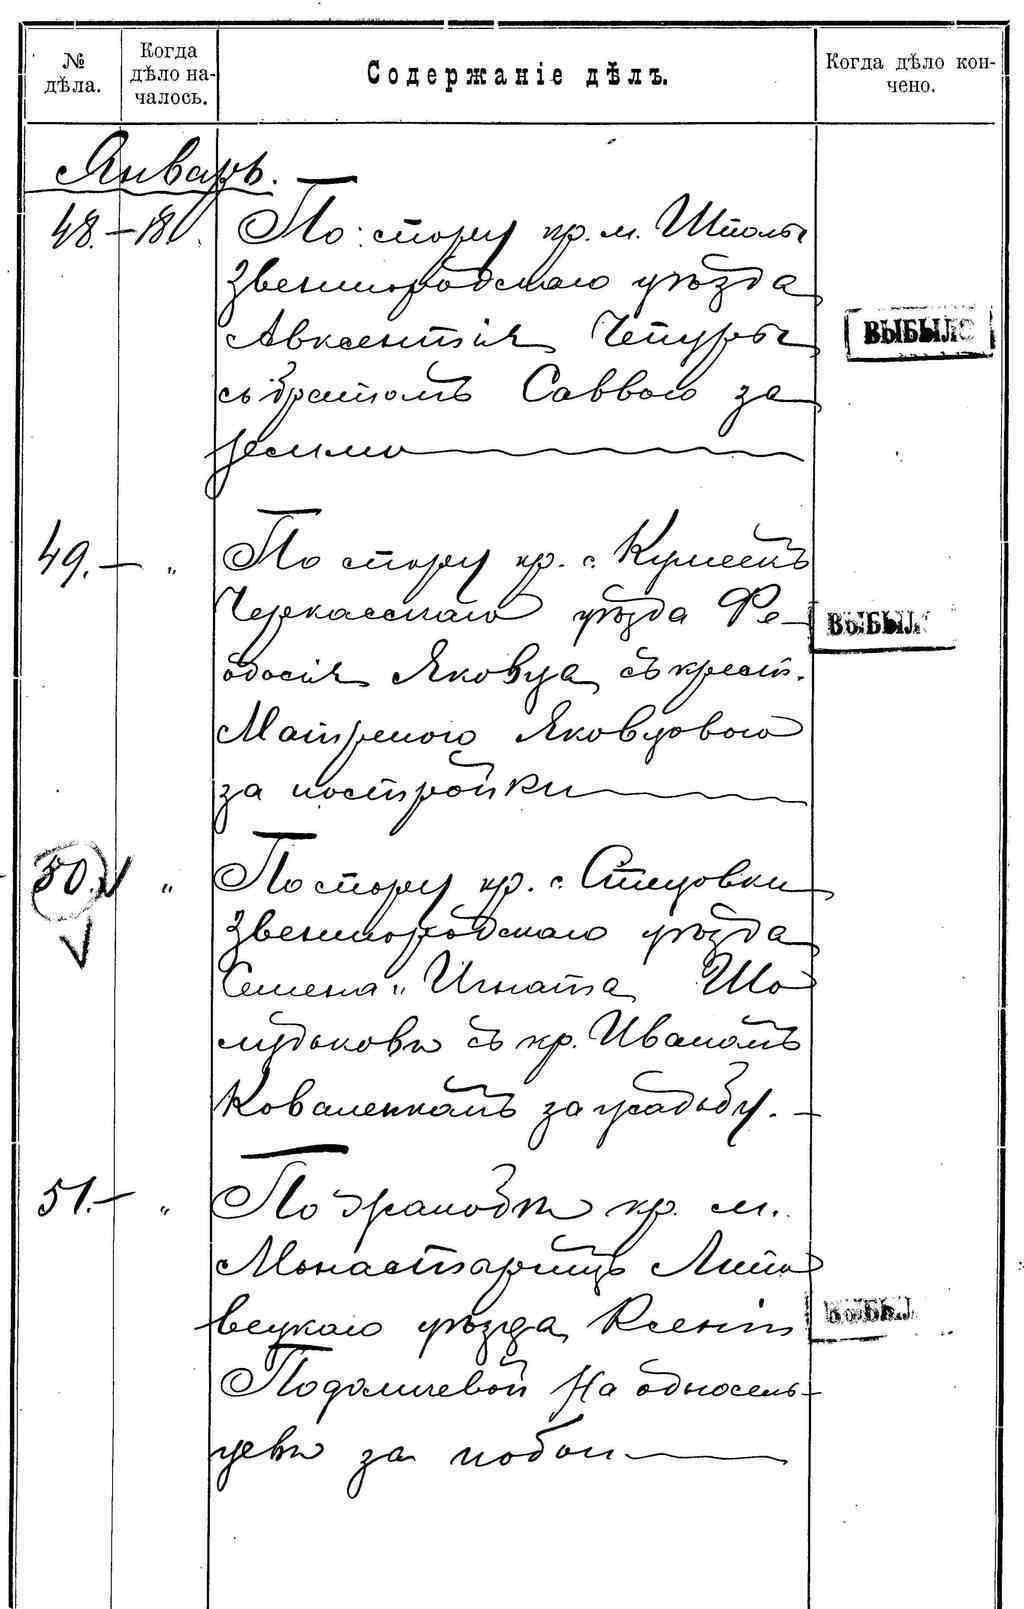 № дѣла.
Когда дѣло началось.
Содержаніе дѣлъ.
Когда дѣло кончено.
Январь.
48. – 18. По спору кр. м. Шполы
Звенигородскаго уѣзда
Авксентія Чепуры
съ братомъ Саввою за
землю
ВЫБЫЛО
49. – „ По спору кр. с. Кумеекъ
Черкасскаго уѣзда Ѳе-
одосія Яковца съ крест.
Матреною Яковцовою
за постройки
ВЫБЫЛ
50. „ По спору кр. с. Стецовки
Звенигородскаго уѣзда
Семена и Игната Шо
лудьковъ съ кр. Иваномъ
Коваленкомъ за усадьбу. –
51. – „ По жалобѣ кр. м.
Монастырищъ Липо
вецкаго уѣзда Ксеніи
на односель-
цевъ за побои
ВЫБЫЛ